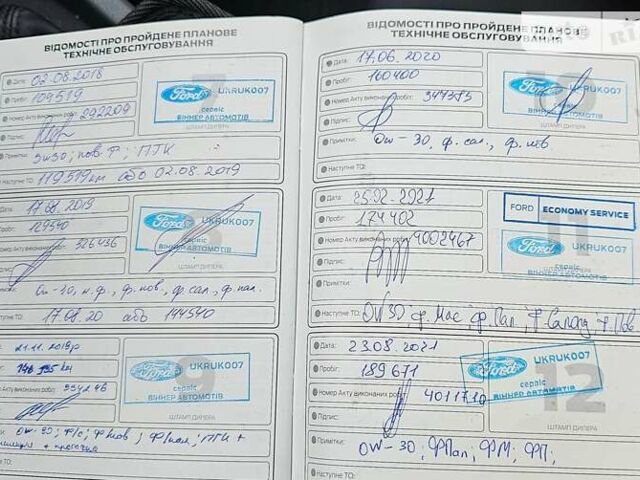 ВІДОМОСТІ ПРО ПРОЙДЕНЕ ПЛАНОВЕ
ТЕХНІЧНЕ ОБСЛУГОВУВАННЯ
Дата: 02.08.2018
Пробіг: 109519
Номер Акту виконаних робіт: 292209
Підпис:
Примітки: 5w30; пов Ф; ПТК
Наступне ТО: 119519км або 02.08.2019
7
Ford UKRUK007
сервіс
ВІННЕР АВТОМОТІВ
ШТАМП ДИЛЕРА
17.08.2019
129540
326436
Ow-30, м.ф., ф.пов, ф.сал., ф.пал.
17.08.20 або 144540
8
Ford UKRUK007
сервіс
ВІННЕР АВТОМОТІВ
ШТАМП ДИЛЕРА
21.11.2019р
Ow-30; Ф/с; Ф/пов; Ф/пал; ПТК +
+ прочистка
9
Ford UKRUK007
сервіс
ВІННЕР АВТОМОТІВ
ШТАМП ДИЛЕРА
ВІДОМОСТІ ПРО ПРОЙДЕНЕ ПЛАНОВЕ
ТЕХНІЧНЕ ОБСЛУГОВУВАННЯ
Дата: 17.06.2020
Пробіг: 160400
Номер Акту виконаних робіт:
Підпис:
Примітки: Ow-30, ф. сал., ф.пов.
Наступне ТО:
10
Ford UKRUK007
сервіс
ВІННЕР АВТОМОТІВ
ШТАМП ДИЛЕРА
Дата: 25.02.2021
Пробіг: 174402
Номер Акту виконаних робіт: 4002467
Підпис:
Примітки:
Наступне ТО: OW30; ф. Мас; ф. Пал; ф Салону ф. Пов
11
FORD ECONOMY SERVICE
Ford UKRUK007
сервіс
ВІННЕР АВТОМОТІВ
ШТАМП ДИЛЕРА
Дата: 23.08.2021
Пробіг: 189671
Номер Акту виконаних робіт: 4011710
Підпис:
Примітки: OW-30; ФПал; ФМ; ФП;
Наступне ТО:
12
Ford UKRUK007
сервіс
ВІННЕР АВТОМОТІВ
ШТАМП ДИЛЕРА